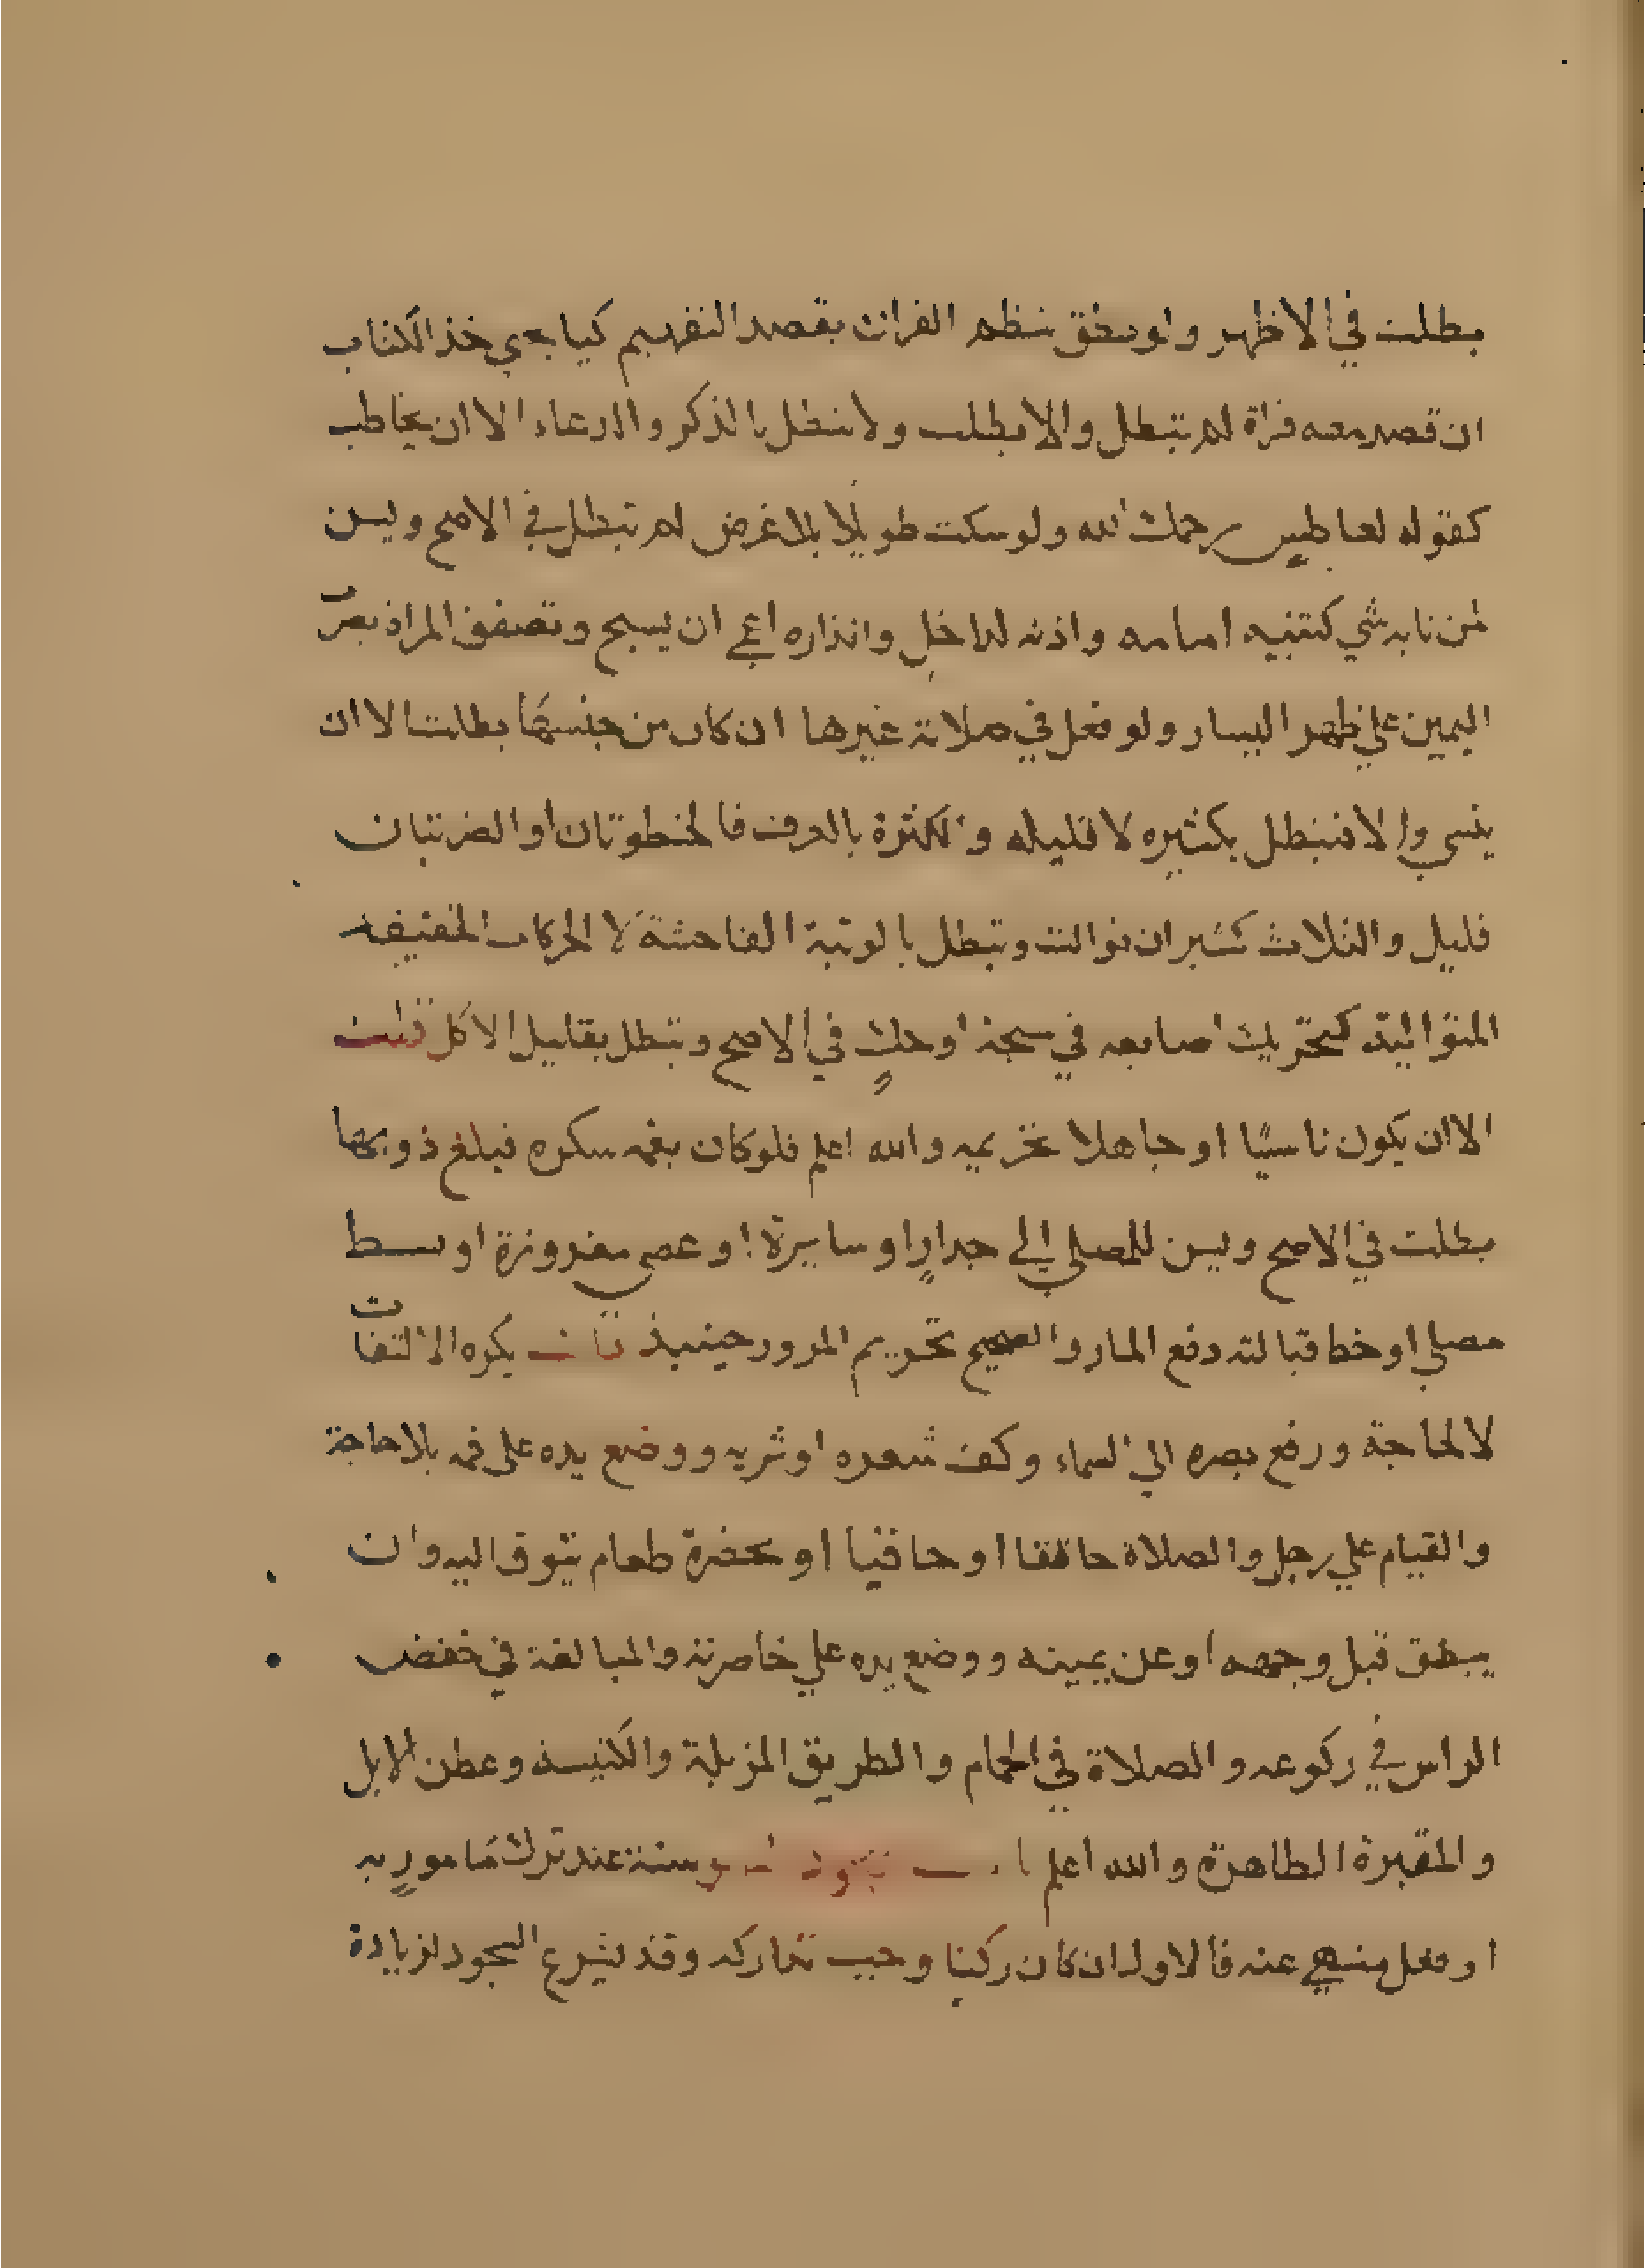 بطلت في الاظهر ولو نطق بنظم القران بقصد التفهيم كيا يحيي خذ الكتاب
ان قصد معه قراة لم تبطل والا بطلت ولا تبطل بالذكر والدعاء الا ان يخاطب
كقوله لعاطس رحمك الله ولو سكت طويلا بلا غرض لم تبطل في الاصح ويسن
لمن نابه شي كتنبيه امامه واذنه لداخل وانذاره اعمي ان يسبح وتصفق المراة بضرب
اليمين علي ظهر اليسار ولو فعل في صلاته غيرها ان كان من جنسها بطلت الا ان
ينسي والا فتبطل بكثيره لا قليله والكثرة بالعرف فالخطوتان او الضربتان
قليل والثلاث كثير ان توالت وتبطل بالوثبة الفاحشة لا الحركات الخفيفه
المتواليته كتحريك اصابعه في سبحة او حك في الاصح وتبطل بقليل الاكل قلت
الا ان يكون ناسيا او جاهلا تحريمه والله اعلم فلو كان بفمه سكره فبلغ ذوبها
بطلت في الاصح ويسن للمصلي الي جدار او سايرة او عصي مغروزة او بسط
مصلي او خطا قبالته دفع المار والصحيح تحريم المرور حينيذ قلت يكره الالتفات
لا لحاجة ورفع بصره الي السماء وكف شعره او ثوبه ووضع يده على فمه بلا حاجة
والقيام علي رجل والصلاة حاقنا او حاقبا او بحضرة طعام يتوق اليه وان
يبصق قبل وجهه او عن يمينه ووضع يده علي خاصرته والمبالغة في خفض
الراس في ركوعه والصلاة في الحمام والطريق المزبلة والكنيسة وعطن الابل
والمقبرة الطاهرة والله اعلم باب سجود السهو سنة عند ترك مامور به
او فعل منهي عنه فالاول ان كان ركنا وجب تداركه وقد يشرع السجود لزيادة